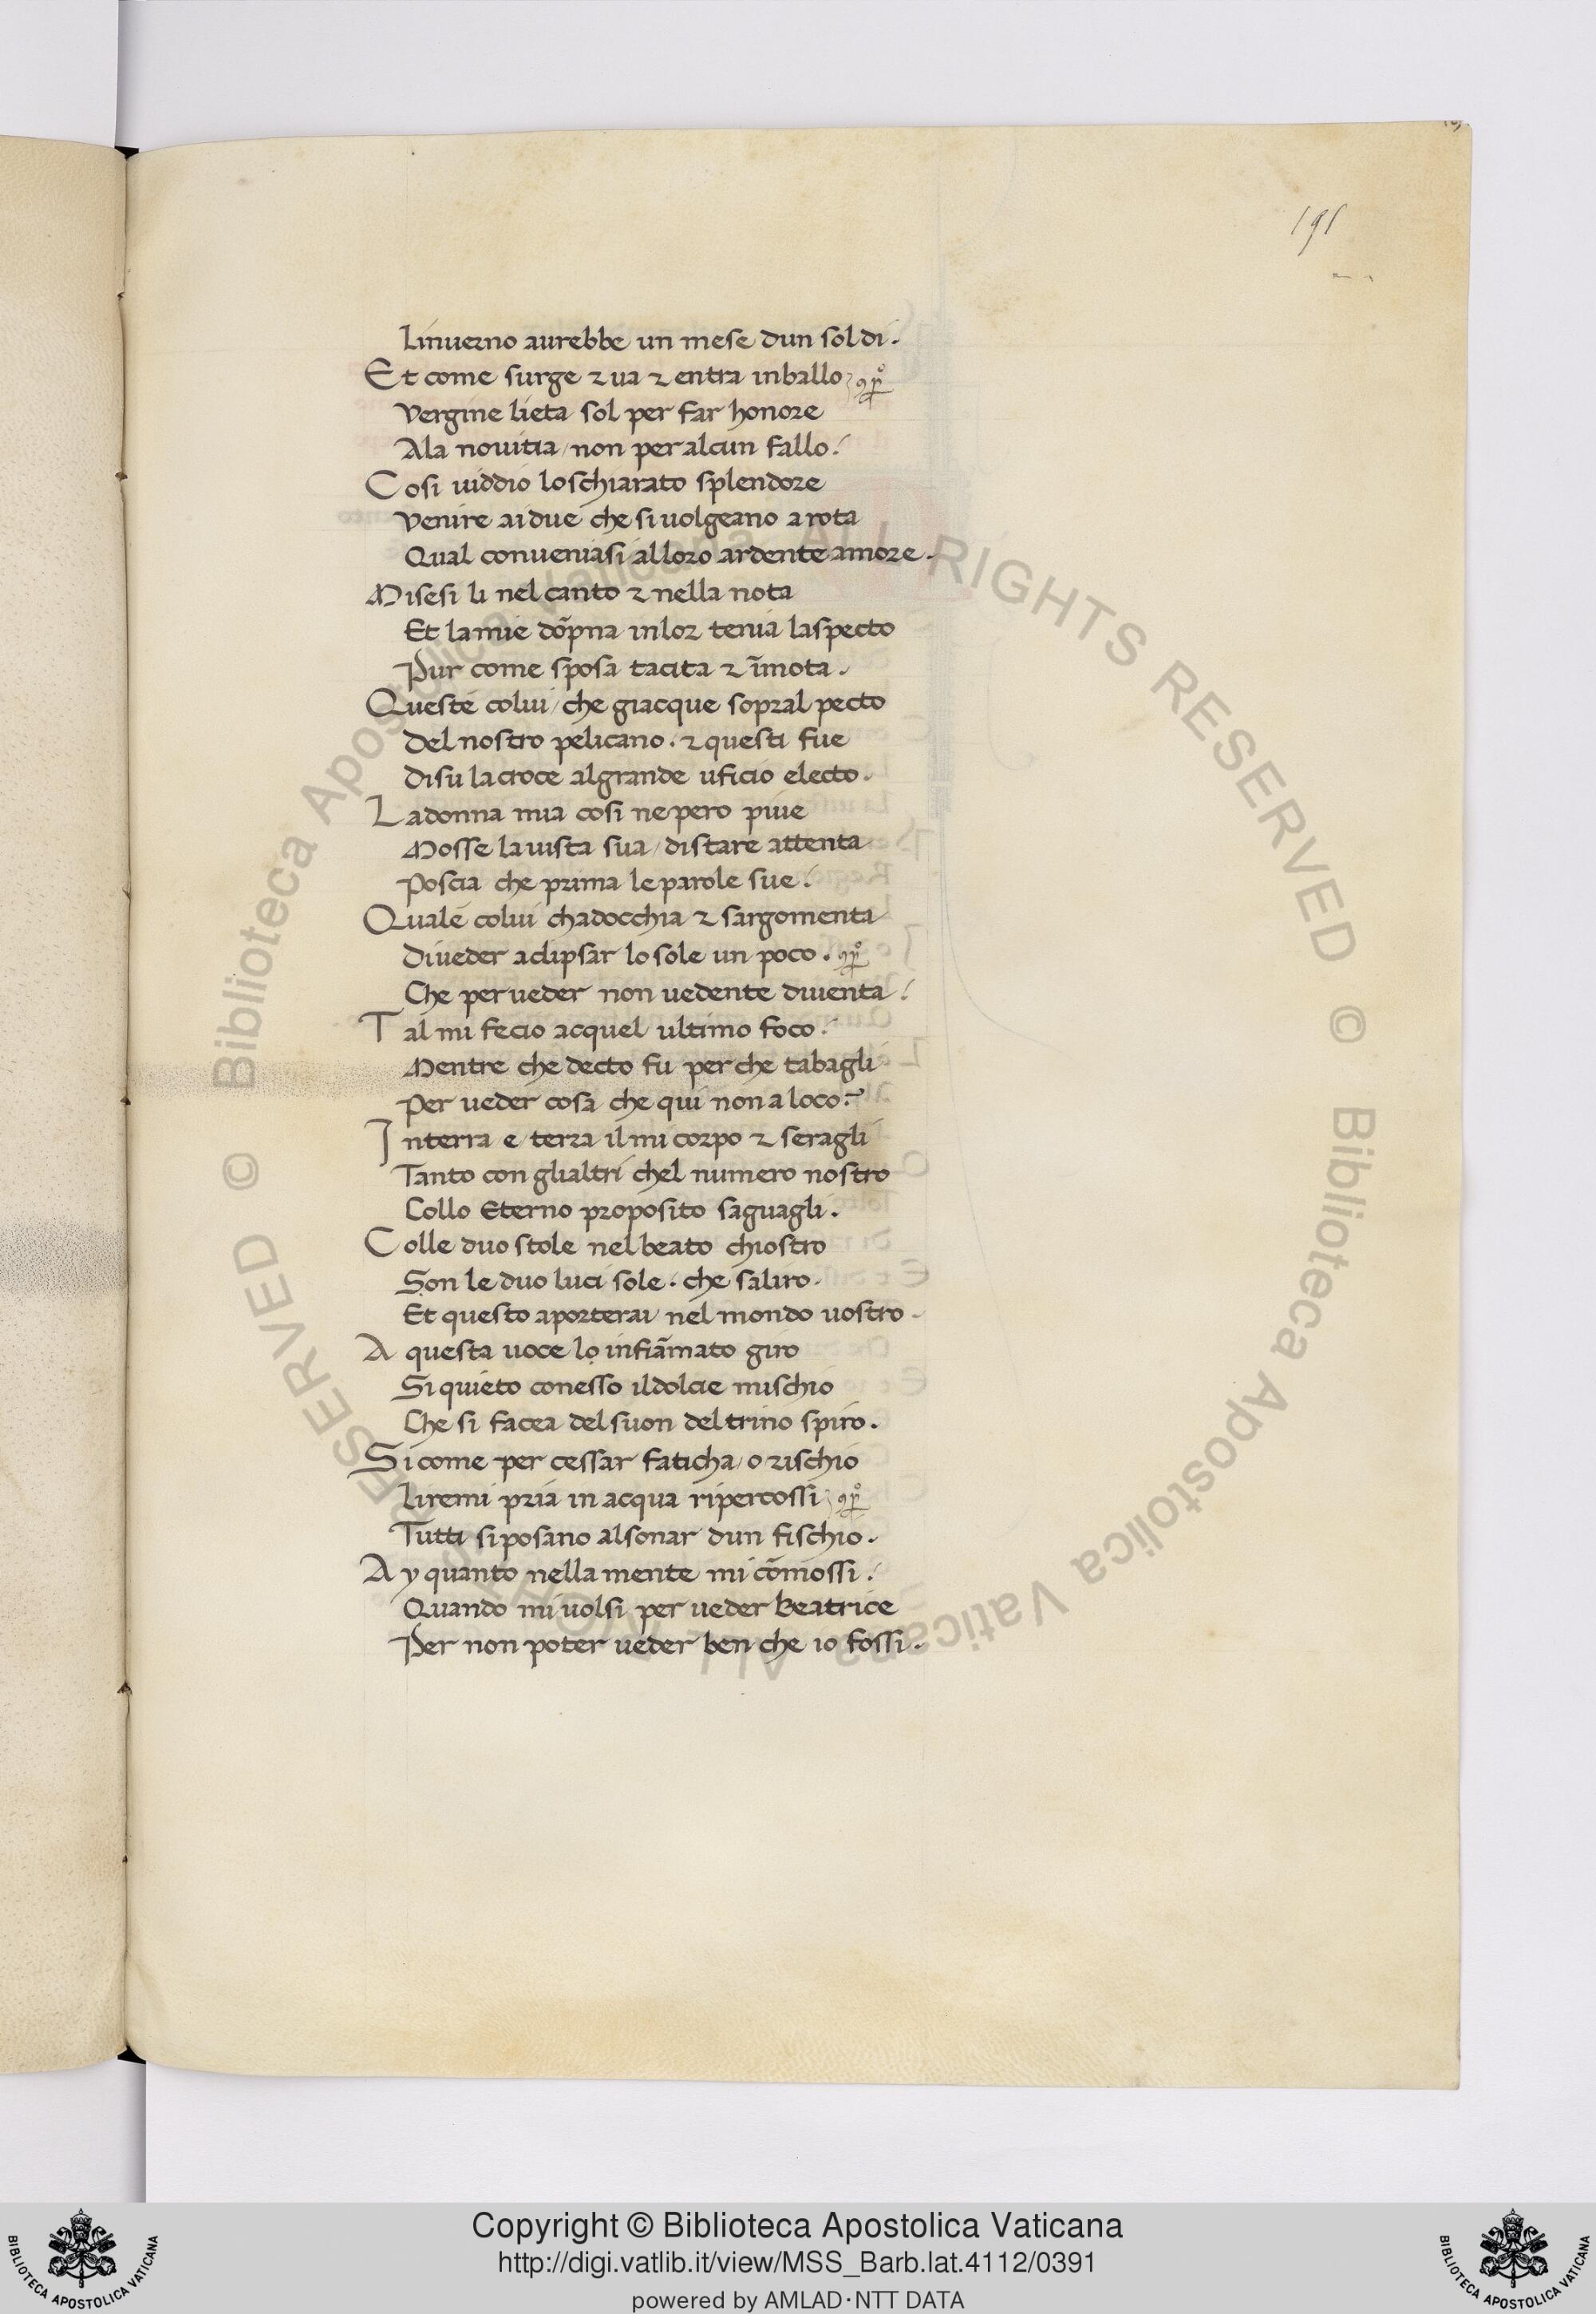 191
Linuerno aurebbe un mese dun sol di.
Et come surge ⁊ ua ⁊ entra inballo
Vergine lieta sol per far honore
Ala nouitia / non per alcun fallo.
Cosi uiddio lo schiarato splendore
Venire ai due che si uolgeano a rota
Qual conueniasi al loro ardente amore.
Misesi li nel canto ⁊ nella nota
Et la mie do̅pna in lor tenia laspecto
Pur come sposa tacita ⁊ i̅mota.
Queste colui / che giacque sopral pecto
Del nostro pelicano. ⁊ questi fue
Di su la croce al grande uficio electo.
La donna mia cosi ne pero piue
Mosse la uista sua / di stare attenta
Poscia che prima le parole sue.
Quale colui chadocchia ⁊ sargomenta
Di ueder aclipsar lo sole un poco.
Che per ueder non uedente diuenta.
Tal mi fecio acquel ultimo foco.
Mentre che decto fu per che tabagli
Per ueder cosa che qui non a loco.
Interra e terra il mi corpo ⁊ seragli
Tanto con glialtri chel numero nostro
Collo Eterno proposito saguagli.
Colle duo stole nel beato chiostro
Son le duo luci sole. che saliro.
Et questo aporterai nel mondo uostro.
A questa uoce lo infia̅mato giro
Si quieto conesso il dolcie mischio
Che si facea del suon del trino spiro.
Si come per cessar faticha / o rischio
Li remi pria in acqua ripercossi
Tutti si posano al sonar dun fischio.
Ay quanto nella mente mi co̅mossi.
Quando mi uolsi per ueder Beatrice
Per non poter ueder ben che io fossi.
© Biblioteca Apostolica Vaticana ALL RIGHTS RESERVED © Biblioteca Apostolica Vaticana ALL RIGHTS RESERVED
Copyright © Biblioteca Apostolica Vaticana
http://digi.vatlib.it/view/MSS_Barb.lat.4112/0391
powered by AMLAD·NTT DATA
BIBLIOTECA APOSTOLICA VATICANA
BIBLIOTECA APOSTOLICA VATICANA